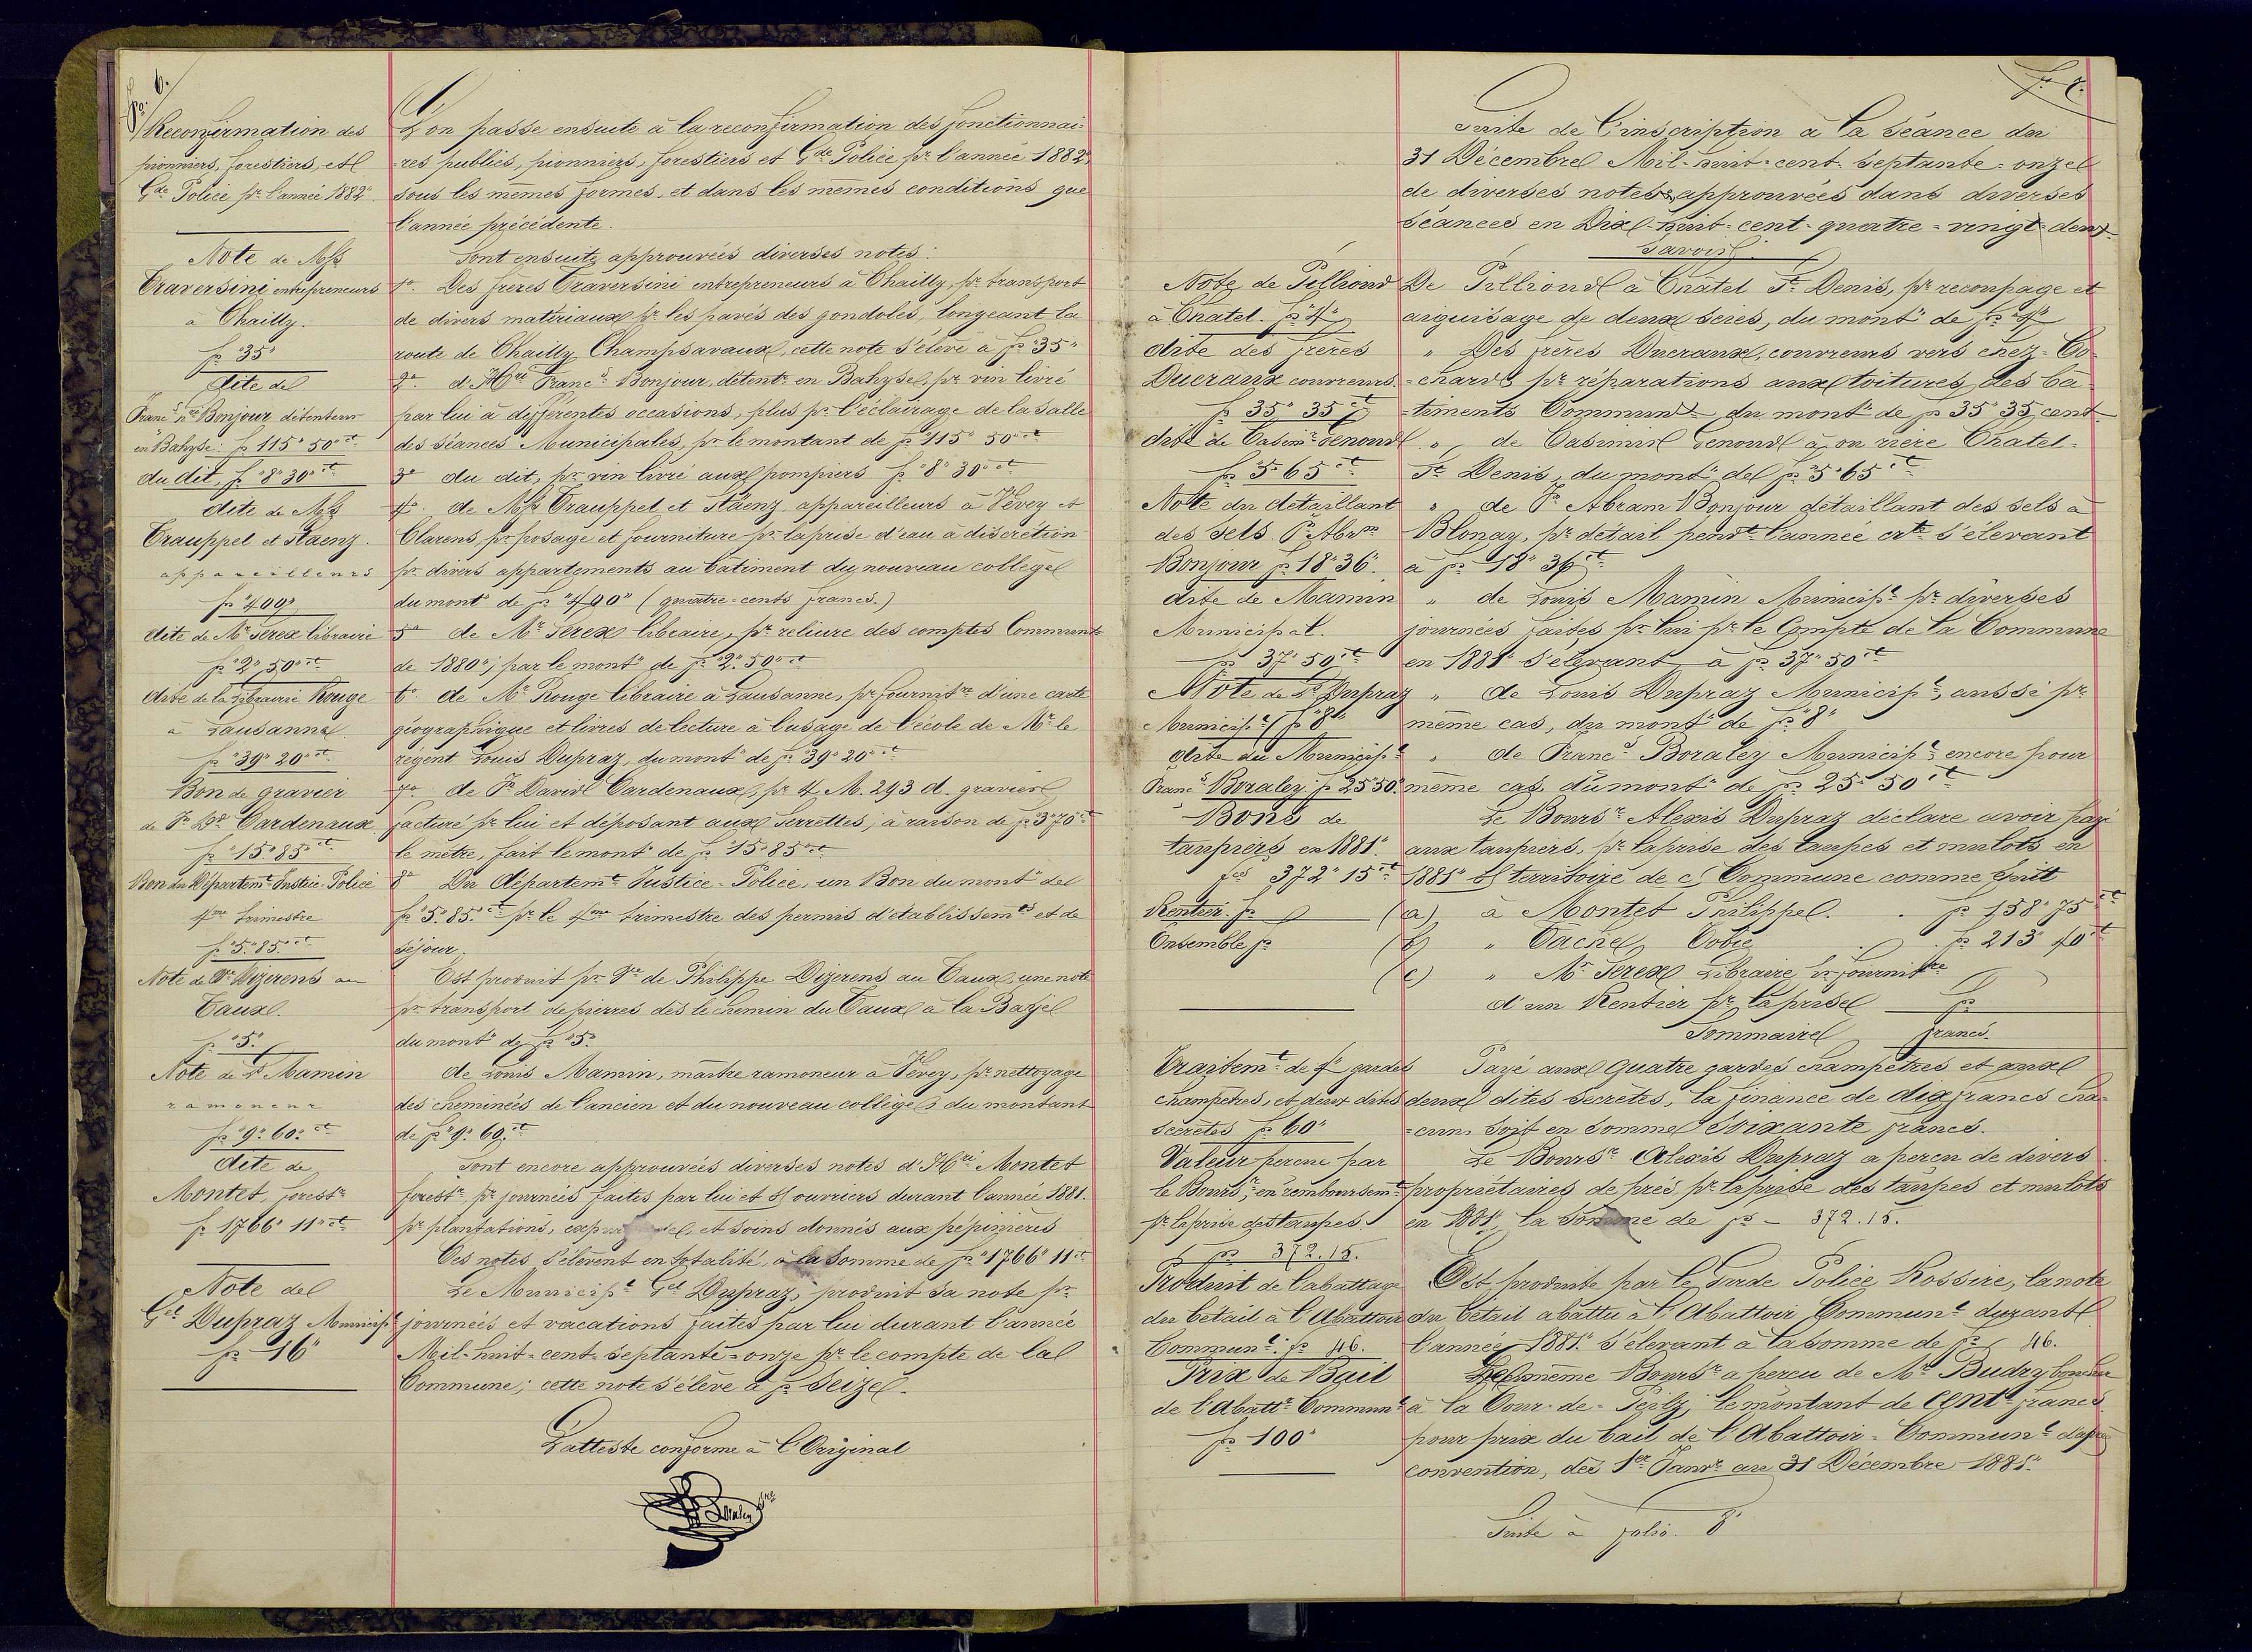 fo. 6.
Reconfirmation des
pionniers, forestiers, et
Gde Police pr l'année 1882.
Note de Mss
Traversini entrepreneurs
à Chailly.
fr "35"
dite de
Franc.s Bonjour détenteur
en Bahyse: fr 115" 50 ct
du dit, fr "8" 30 ct
dite de Mss
Trauppel et Staenz.
appareilleurs
fr "400"
dite de Mr Serex libraire
fr "2" 50 ct
dite de la Librairie Rouge
à Lausanne
fr "39" 20 ct
Bon de gravier
de Pr Dd Cardenaux
fr "15" 85 ct
Bon du Départemt Justice-Police
4me trimestre
fr "5" 85 ct
Note de Ve Dizerens au
Taux.
fr "5"
Note de Ls Mamin
ramoneur
fr "9" 60 ct
dite de
Montet, forestr
fr 1766" 11 ct
Note de
Gel Dupraz Municipl
fr "16"
L'on passe ensuite à la reconfirmation des fonctionnai-
res publics, pionniers, forestiers et Gde Police pr l'année 1882"
sous les mêmes formes, et dans les mêmes conditions que
l'année précédente.
Sont ensuite approuvées diverses notes:
1o. Des frères Traversini entrepreneurs à Chailly, pr transport
de divers matériaux pr les pavés des gondoles, longeant la
route de Chailly Champsavaux, cette note s'élève à fr "35"
2o. d'Hri Franc.s Bonjour, détentr en Bahyse, pr vin livré
par lui à différentes occasions, plus pr l'éclairage de la Salle
des séances Municipales, pr le montant de fr "115" 50 ct
3o du dit, pr vin livré aux pompiers fr "8" 30 ct
4o. de Mss Trauppel et Staenz appareilleurs à Vevey et
Clarens, pr posage et fourniture pr la prise d'eau à discrétion
pr divers appartements au bâtiment du nouveau collège
du mont de fr "400" (quatre-cents francs.)
5o de Mr Serex libraire, pr reliure des comptes Communx
de 1880"; par le mont de fr "2" 50 ct
6o de Mr Rouge libraire à Lausanne, pr fournitre d'une carte
géographique et livres de lecture à l'usage de l'école de Mr le
régent Louis Dupraz, du mont de fr "39" 20 ct
7o de Pr David Cardenaux, pr 4 M. 293 d. gravier
facturé pr lui et déposant aux Serrettes, à raison de fr 3"70 ct
le mètre, fait le mont de fr "15" 85 ct
8o Du Départemt Justice-Police, un Bon du mont de
fr "5" 85 ct pr le 4me trimestre des permis d'établissemts et de
séjour.
Est produit pr Ve de Philippe Dizerens au Taux, une note
pr transport de pierres dès le chemin du Taux à la Baye
du mont de fr "5"
de Louis Mamin, maître ramoneur à Vevey, pr nettoyage
des cheminées de l'ancien et du nouveau collèges du montant
de fr "9" 60 ct
Sont encore approuvées diverses notes d'Hri Montet
forestr pr journées faites par lui et ss ouvriers durant l'année 1881.
pr plantations, et soins donnés aux pépinières
Ces notes s'élèvent en totalité, à la Somme de fr "1766" 11 ct
Le Municipl Gel Dupraz, produit sa note pr
journées et vacations faites par lui durant l'année
Mil-huit-cent-septante-onze pr le compte de la
Commune; cette note s'élève à fr Seize.
L'atteste conforme à l'Original
Suite de l'inscription à la Séance du
31 Décembre Mil-huit-cent-septante-onze
de diverses notes approuvées dans diverses
séances en Dix-huit-cent-quatre-vingt-deux
Savoir.
Note de Pilliond
à Châtel. fr "4"
dite des frères
Ducraux couvreurs
fr 35" 35 ct
dite de Casimr Genoud
fr 5" 65 ct
Note du détaillant
des Sels Pr Abrm
Bonjour fr 18" 36.
dite de Mamin
Municipal.
fr 37" 50 ct
Note de Ls Dupraz
Municipl fr "8"
dite du Municipl
Franc.s Boraley fr 25"50
Bons de
taupiers en 1881"
fcs 372" 15 ct
Rentier. fr
Ensemble fr
Traitemt de 4 gardes
champêtres, et deux dites
secrètes fr 60"
Valeur perçue par
le Boursr en remboursemt
pr la prise des taupes.
fr 372.15.
Produit de l'abattage
du bétail à l'Abattoir
Communl: fr 46.
Prix de Bail
de l'Abattr Communl
fr 100"
De Pilliond à Châtel St Denis, pr recoupage et
aiguisage de deux scies, du mont de fr "4"
" Des frères Ducraux, couvreurs vers chez-Co-
-chard pr réparations aux toitures des bâ-
-timents Communx du mont de fr 35" 35 cent
" de Casimir Genoud à on rière Châtel-
St Denis, du mont de fr "5" 65 ct
" de Pr Abram Bonjour détaillant des sels à
Blonay, pr détail pendt l'année crte s'élevant
à fr 18" 36 ct
" de Louis Mamin Municipl pr diverses
journées faites pr lui pr le Compte de la Commune
en 1881" s'élevant à fr 37" 50 ct
" de Louis Dupraz Municipl, aussi pr
même cas, du mont de fr "8"
" de Franc.s Boraley Municipl encore pour
même cas du mont de fr 25" 50 ct
Le Boursr Alexis Dupraz déclare avoir payé
aux taupiers, pr la prise des taupes et mulots en
1881" ss territoire de c/ Commune comme suit
(a) à Montet Philippe. fr 158" 75 ct
(b) " Tache, Tobie fr 213" 40 ct
(c) " Mr Serex Libraire pr fournitre
d'un Rentier pr la prise fr
Sommaire francs.
Payé aux quatre gardes champêtres et aux
deux dites Secrètes, la finance de dix francs cha-
-cun. Soit en Somme Soixante francs.
Le Boursr Alexis Dupraz a perçu de divers
propriétaires de prés, pr la prise des taupes et mulots
en 1881, la Somme de fr - 372.15.
Est produite par le Garde Police Rossire, la note
du bétail abattu à l'Abattoir Communl durant
l'année 1881" s'élevant à la somme de fr 46.
Le même Boursr a perçu de Mr Budry boucher
à la Tour-de-Peilz, le montant de cent francs
pour prix du bail de l'Abattoir-Communl d'après
convention, dès 1er Janvr au 31 Décembre 1881"
Suite à folio. 8"